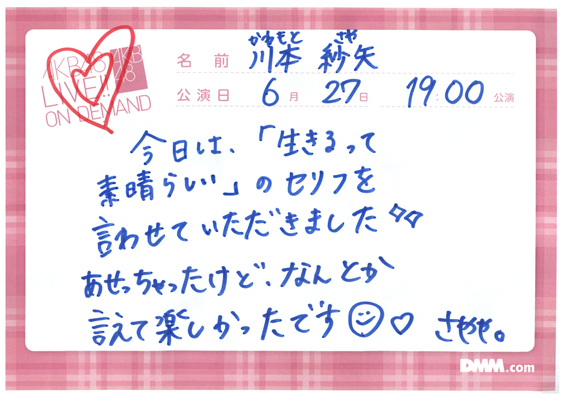 AKB48 LIVE!! ON DEMAND
かわもと さや
名前 川本 紗矢
公演日 6月 27日 19:00 公演
今日は、「生きるって
素晴らしい」のセリフを
言わせていただきました
あせっちゃったけど、なんとか
言えて楽しかったです
さやや。
DMM.com